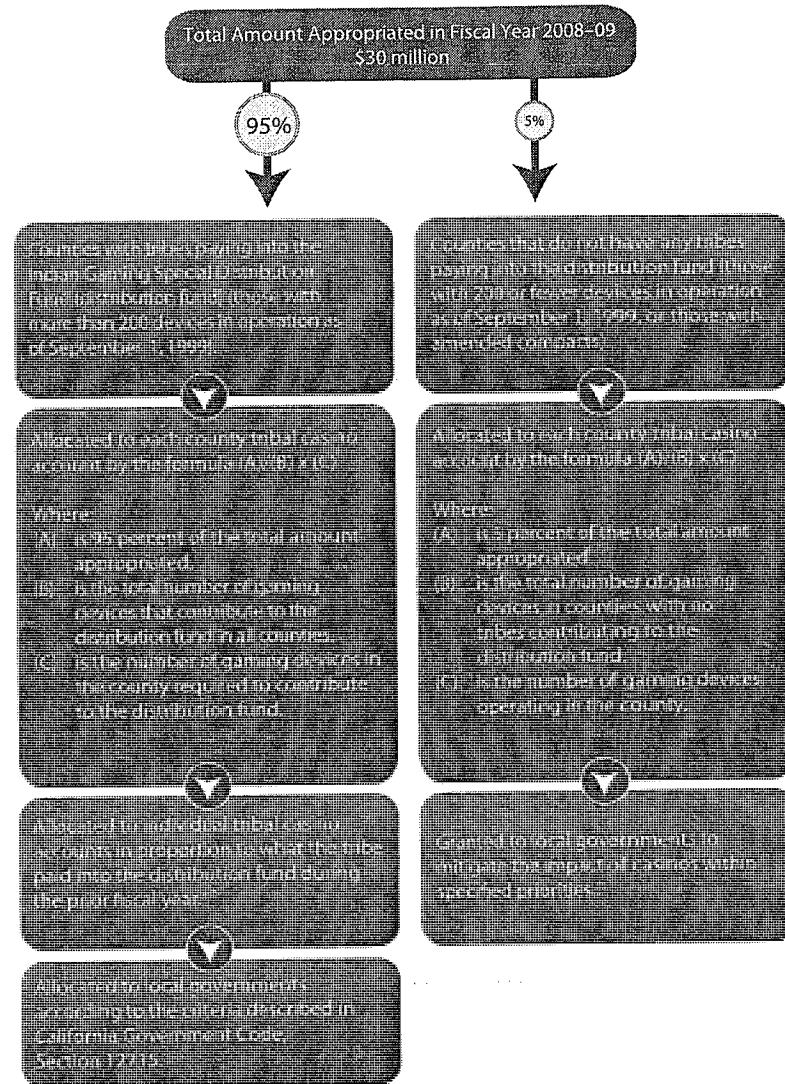 Total Amount Appropriated in Fiscal Year 2008–09
$30 million
95%
5%
Counties with tribes paying into the
Indian Gaming Special Distribution
Fund (distribution fund) (those with
more than 200 devices in operation as
of September 1, 1999).
Allocated to each county tribal casino
account by the formula (A)/(B) x (C)
Where:
(A) is 95 percent of the total amount
appropriated.
(B) is the total number of gaming
devices that contribute to the
distribution fund in all counties.
(C) is the number of gaming devices in
the county required to contribute
to the distribution fund.
Allocated to individual tribal casino
accounts in proportion to what the tribe
paid into the distribution fund during
the prior fiscal year.
Allocated to local governments
according to the criteria described in
California Government Code,
Section 12715.
Counties that do not have any tribes
paying into the distribution fund (those
with 200 or fewer devices in operation
as of September 1, 1999, or those with
amended compacts).
Allocated to each county tribal casino
account by the formula (A)/(B) x (C)
Where:
(A) is 5 percent of the total amount
appropriated.
(B) is the total number of gaming
devices in counties with no
tribes contributing to the
distribution fund.
(C) is the number of gaming devices
operating in the county.
Granted to local governments to
mitigate the impact of casinos within
specified priorities.